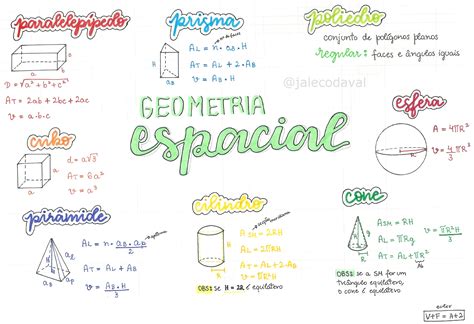 paralelepípedo
D = √a² + b² + c²
AT = 2ab + 2bc + 2ac
V = a.b.c
prisma
AL = n. aB. H
AT = AL + 2.AB
V = AB.H
poliedro
conjunto de polígonos planos
regular: faces e ângulos iguais
@jalecodaval
GEOMETRIA
espacial
esfera
A = 4πR²
V = 4/3 πR³
cubo
d = a√3
AT = 6a²
V = a³
pirâmide
AL = n. aB. ap/2
AT = AL + AB
V = AB.H/3
cilindro
ASM = 2RH
AL = 2πRH
AT = AL + 2.AB
V = πR²H
OBS: se H = 2R é equilátero
cone
ASM = RH
AL = πRg
AT = πRg + πR²
V = πR²H/3
OBS: se a SM for um
triângulo equilátero,
o cone é equilátero
euler
V+F = A+2